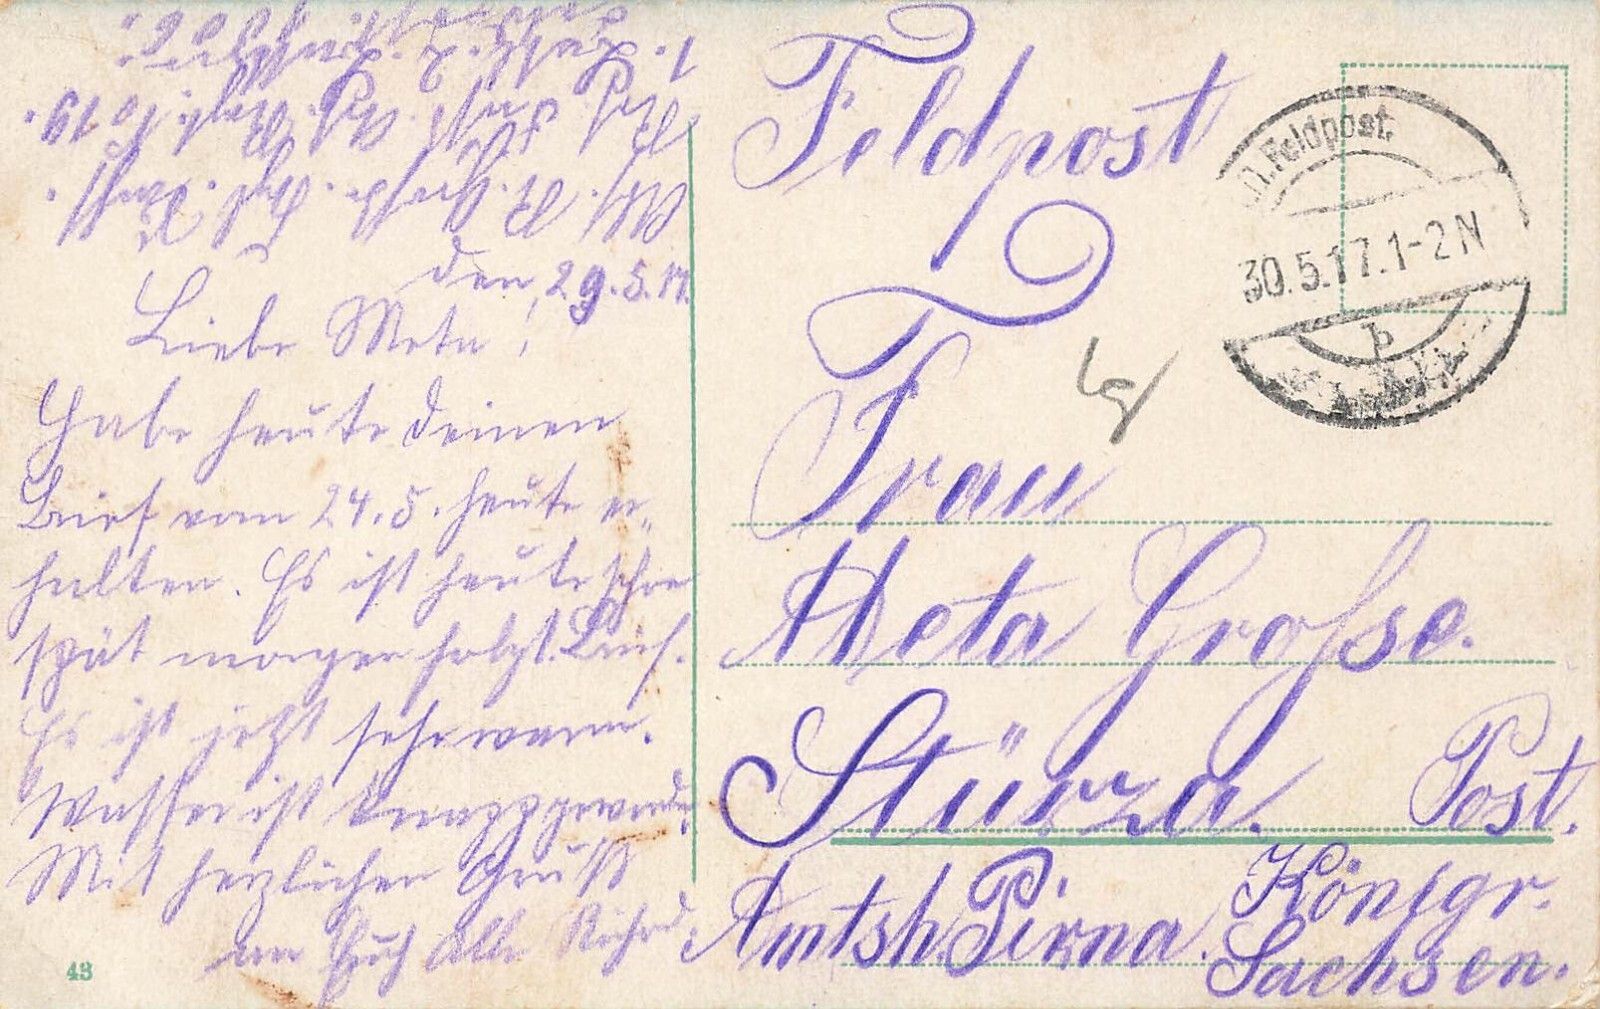 den 29.5.17.
Liebe Meta!
Habe heute deinen
Brief vom 24.5. heute er-
halten. Es ist heute schon
spät morgen folgt Brief.
Es ist jetzt sehr warm.
Wasser ist knapp geworden.
Mit herzlichen Gruß
an Euch Alle Richard.
43
Feldpost
Frau
Meta Große.
Stürza. Post.
Amtsh. Pirna. Königr.
Sachsen.
Feldpost.
30.5.17.1-2N
b